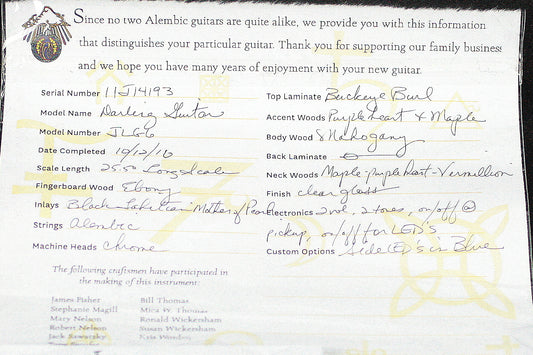 Since no two Alembic guitars are quite alike, we provide you with this information
that distinguishes your particular guitar. Thank you for supporting our family business
and we hope you have many years of enjoyment with your new guitar.
Serial Number 11J14193
Model Name Darling Guitar
Model Number JLG6
Date Completed 10/12/10
Scale Length 25.00 Long Scale
Fingerboard Wood Ebony
Inlays Black Tahitian Mother of Pearl
Strings Alembic
Machine Heads Chrome
Top Laminate Buckeye Burl
Accent Woods Purpleheart & Maple
Body Wood Mahogany
Back Laminate
Neck Woods Maple-purpleheart-Vermillion
Finish clear gloss
Electronics 2 vol, 2 tones, on/off @
pickup, on/off for LED's
Custom Options side LED's in Blue
The following craftsmen have participated
in the making of this instrument:
James Fisher
Stephanie Magill
Mary Nelson
Robert Nelson
Jack Sawatsky
Bill Thomas
Mica W. Thomas
Ronald Wickersham
Susan Wickersham
Kris Worden